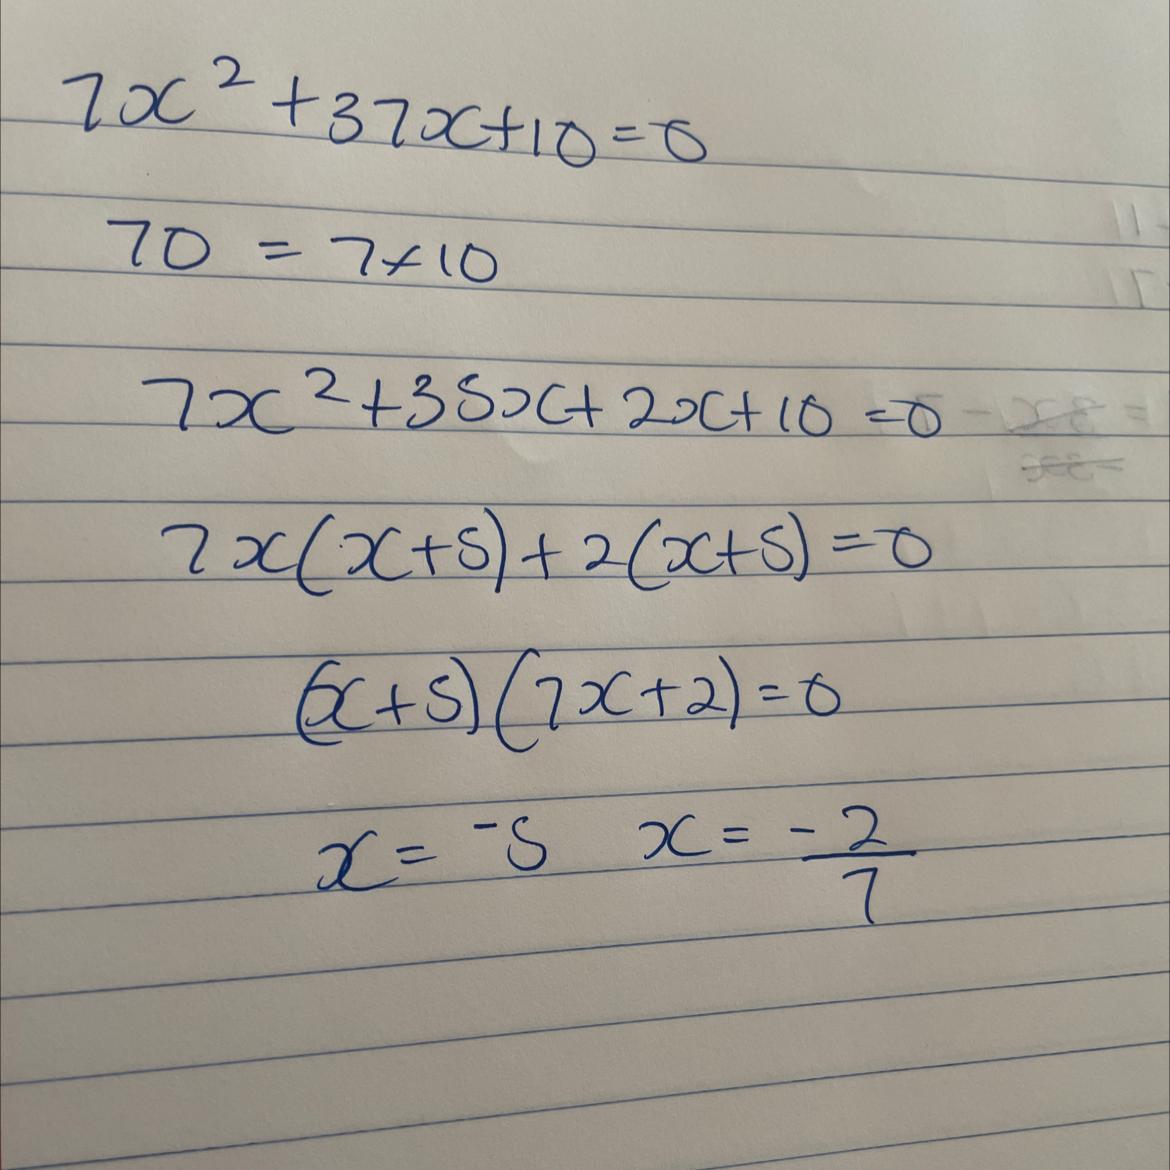 7x² + 37x + 10 = 0
70 = 7 × 10
7x² + 35x + 2x + 10 = 0
7x(x + 5) + 2(x + 5) = 0
(x + 5)(7x + 2) = 0
x = -5   x = -2/7